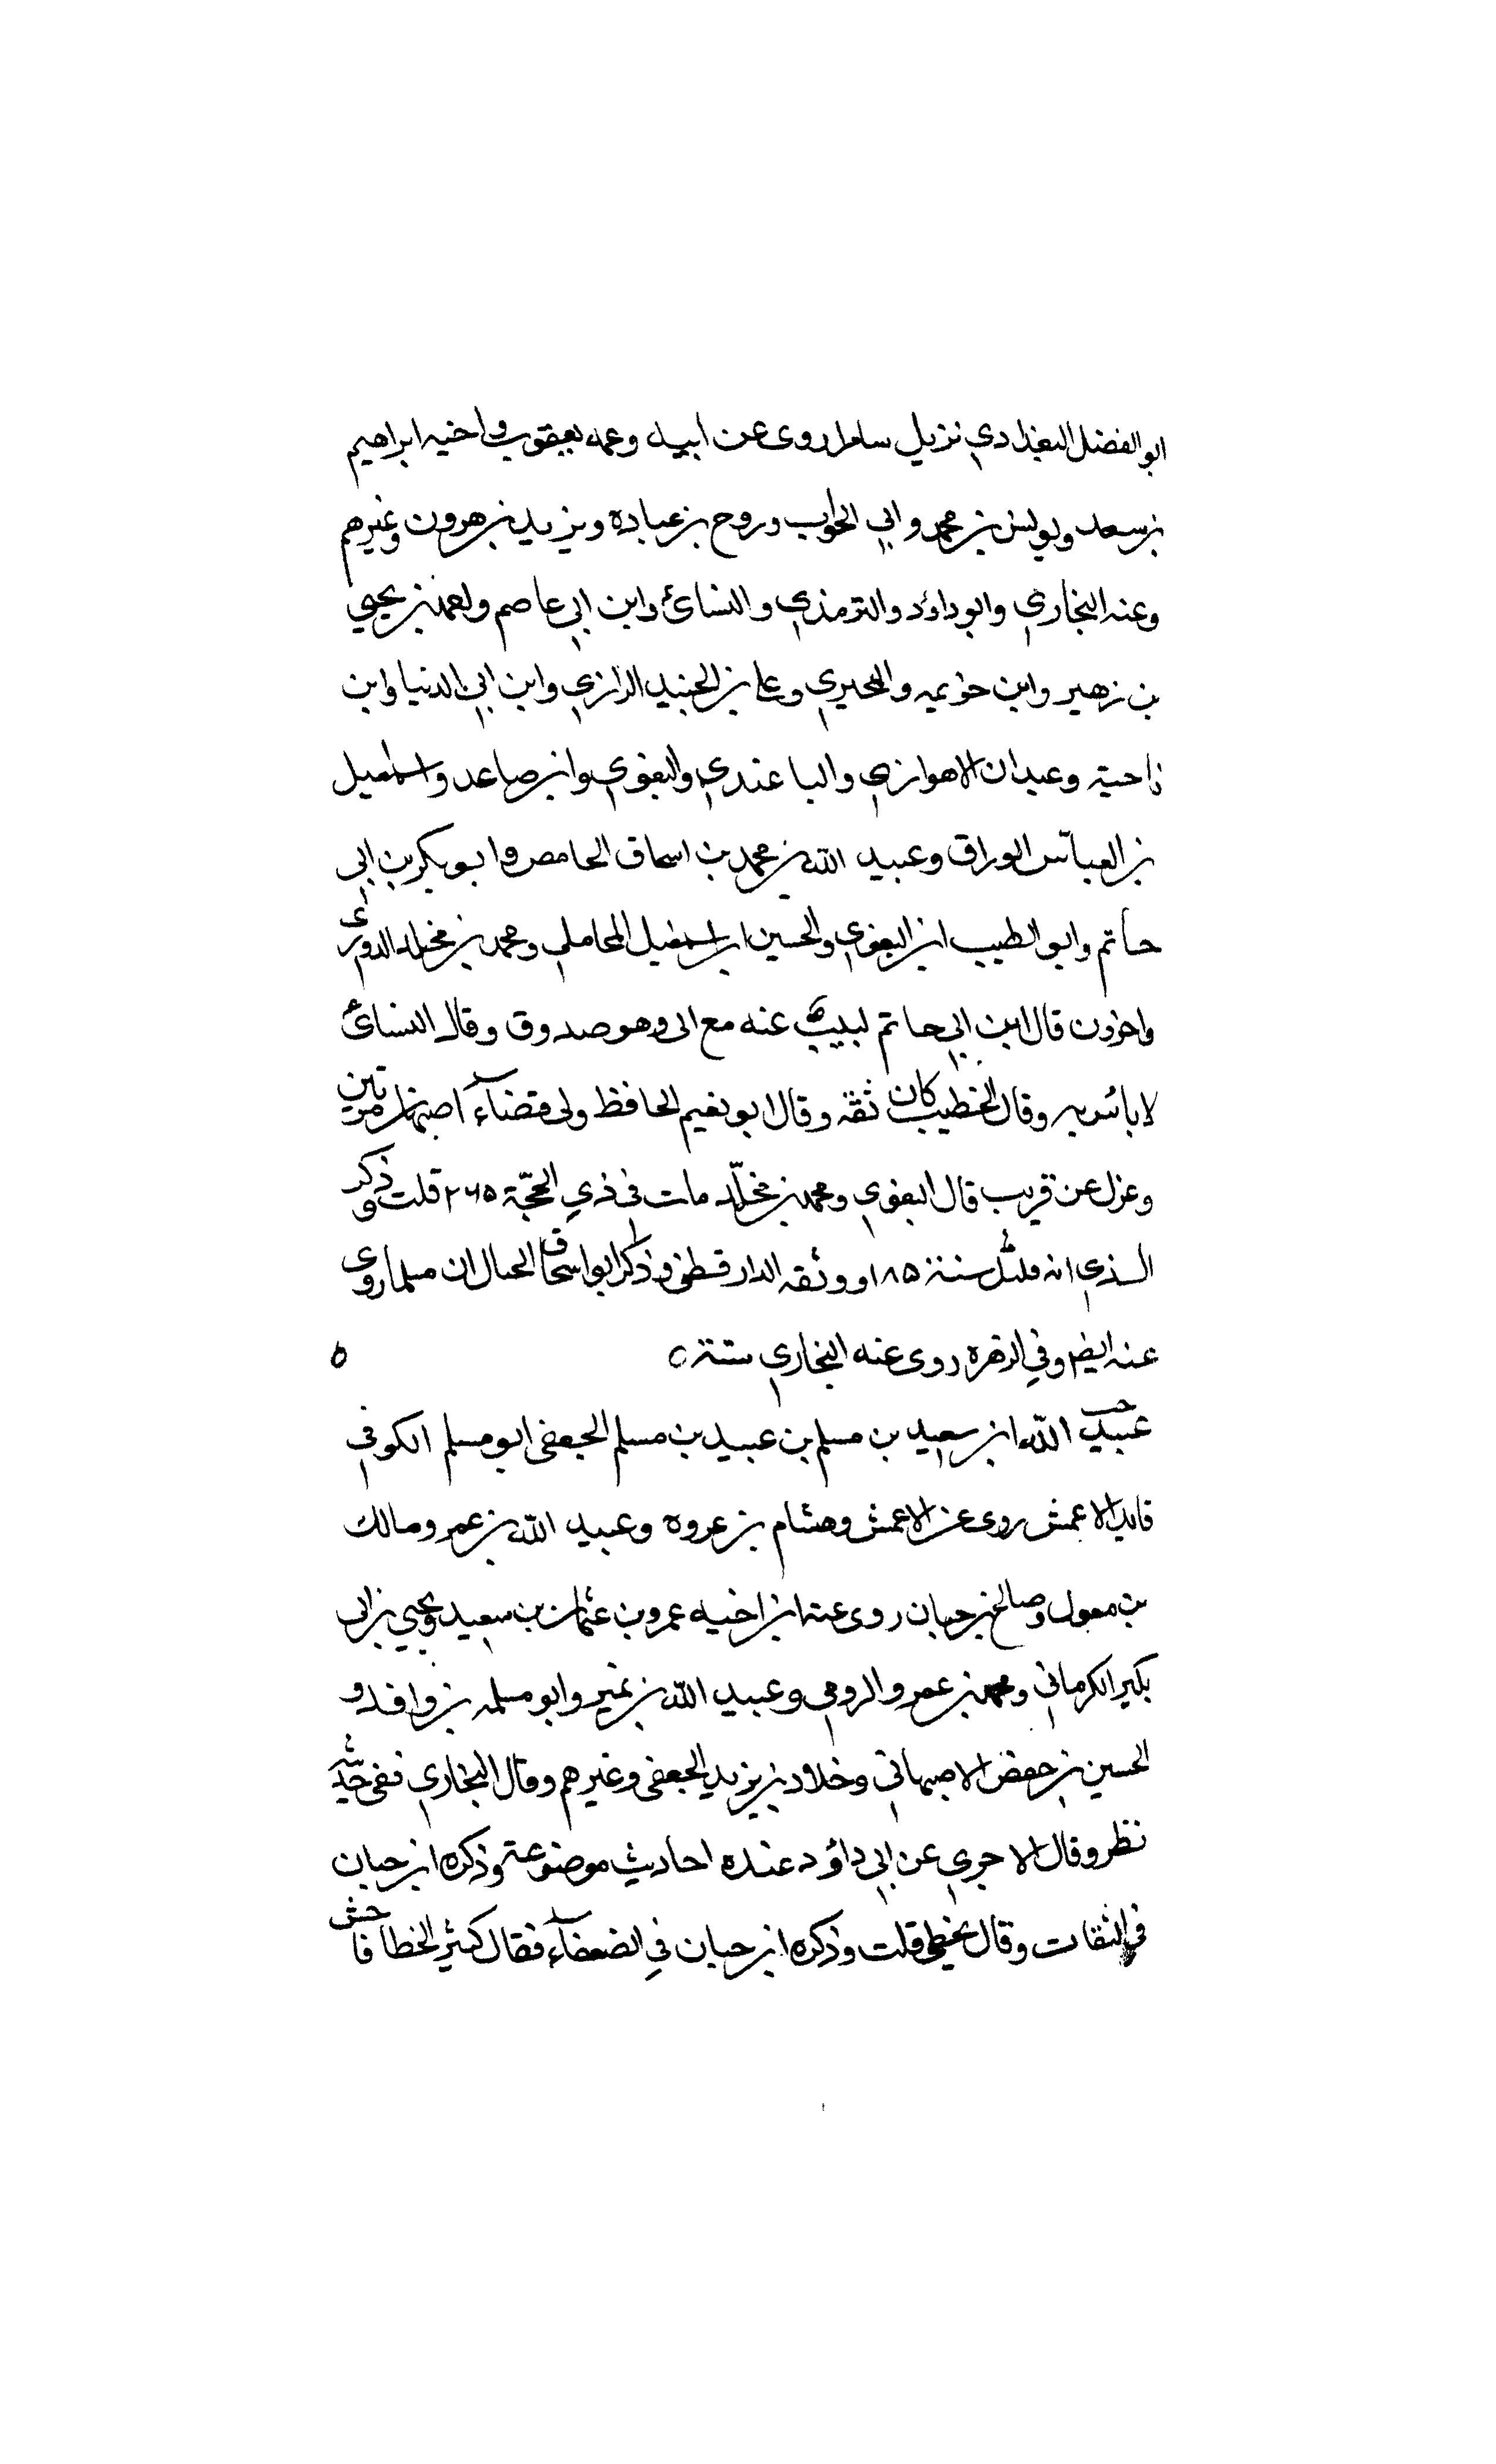 ابو الفضل البغدادي نزيل سامرا روى عن ابيه وعمه يعقوب واخيه ابراهيم
بن سعد ويونس بن محمد وابي الجواب وروح بن عباده ويزيد بن هرون وغيرهم
وعنه البخاري وابو داؤد والترمذي والنسائ وابن ابي عاصم واحمد بن يحيي
بن زهير وابن خزيمه والبجيري وعلي بن الجنيد الرازي وابن ابي الدنيا وابن
ناحية وعبدان الاهوازي والباغندي والبغوي وابن صاعد واسمعيل
بن العباس الوراق وعبيد الله بن محمد بن اسحاق الحامض وابو بكر بن ابي
حاتم وابو الطيب ابن البغوي والحسين ابن اسمعيل المحاملي ومحمد بن مخلد الدوري
واخرون قال ابن ابي حاتم كتبت عنه مع ابى وهو صدوق وقال النسائ
لا باس به وقال الخطيب كان ثقة وقال ابو نعيم الحافظ ولى قضاء اصبهان مرتين
وعزل عن قريب قال البغوي ومحمد بن مخلد مات في ذي الحجة ٢٦٥ قلت وذكر
الذي انه ولد سنة ١٨٥ ووثقه الدارقطني وذكر ابو اسحاق الحبال ان مسلما روى
عنه ايضا وفي الزهره روى عنه البخاري ستة ٥
عبيد الله ابن سعيد بن مسلم بن عبيد بن مسلم الجعفى ابو مسلم الكوفي
قايد الاعمش روى عن الاعمش وهشام بن عروه وعبيد الله بن عمر ومالك
بن مغول وصالح بن حبان روى عنه ابن اخيه عمرو بن عثمان بن سعيد ويحيي بن ابى
بكير الكرماني ومحمد بن عمرو الرومي وعبيد الله بن نمير وابو مسلمه بن وافد و
الحسين بن حفص الاصبهاني وخلاد بن يزيد الجعفى وغيرهم وقال البخاري في حديثه
نظر وقال الاجري عن ابي داؤد عنده احاديث موضوعة وذكره ابن حبان
في الثقات وقال يخطي قلت وذكره ابن حبان في الضعفاء فقال كثير الخطا فاحش